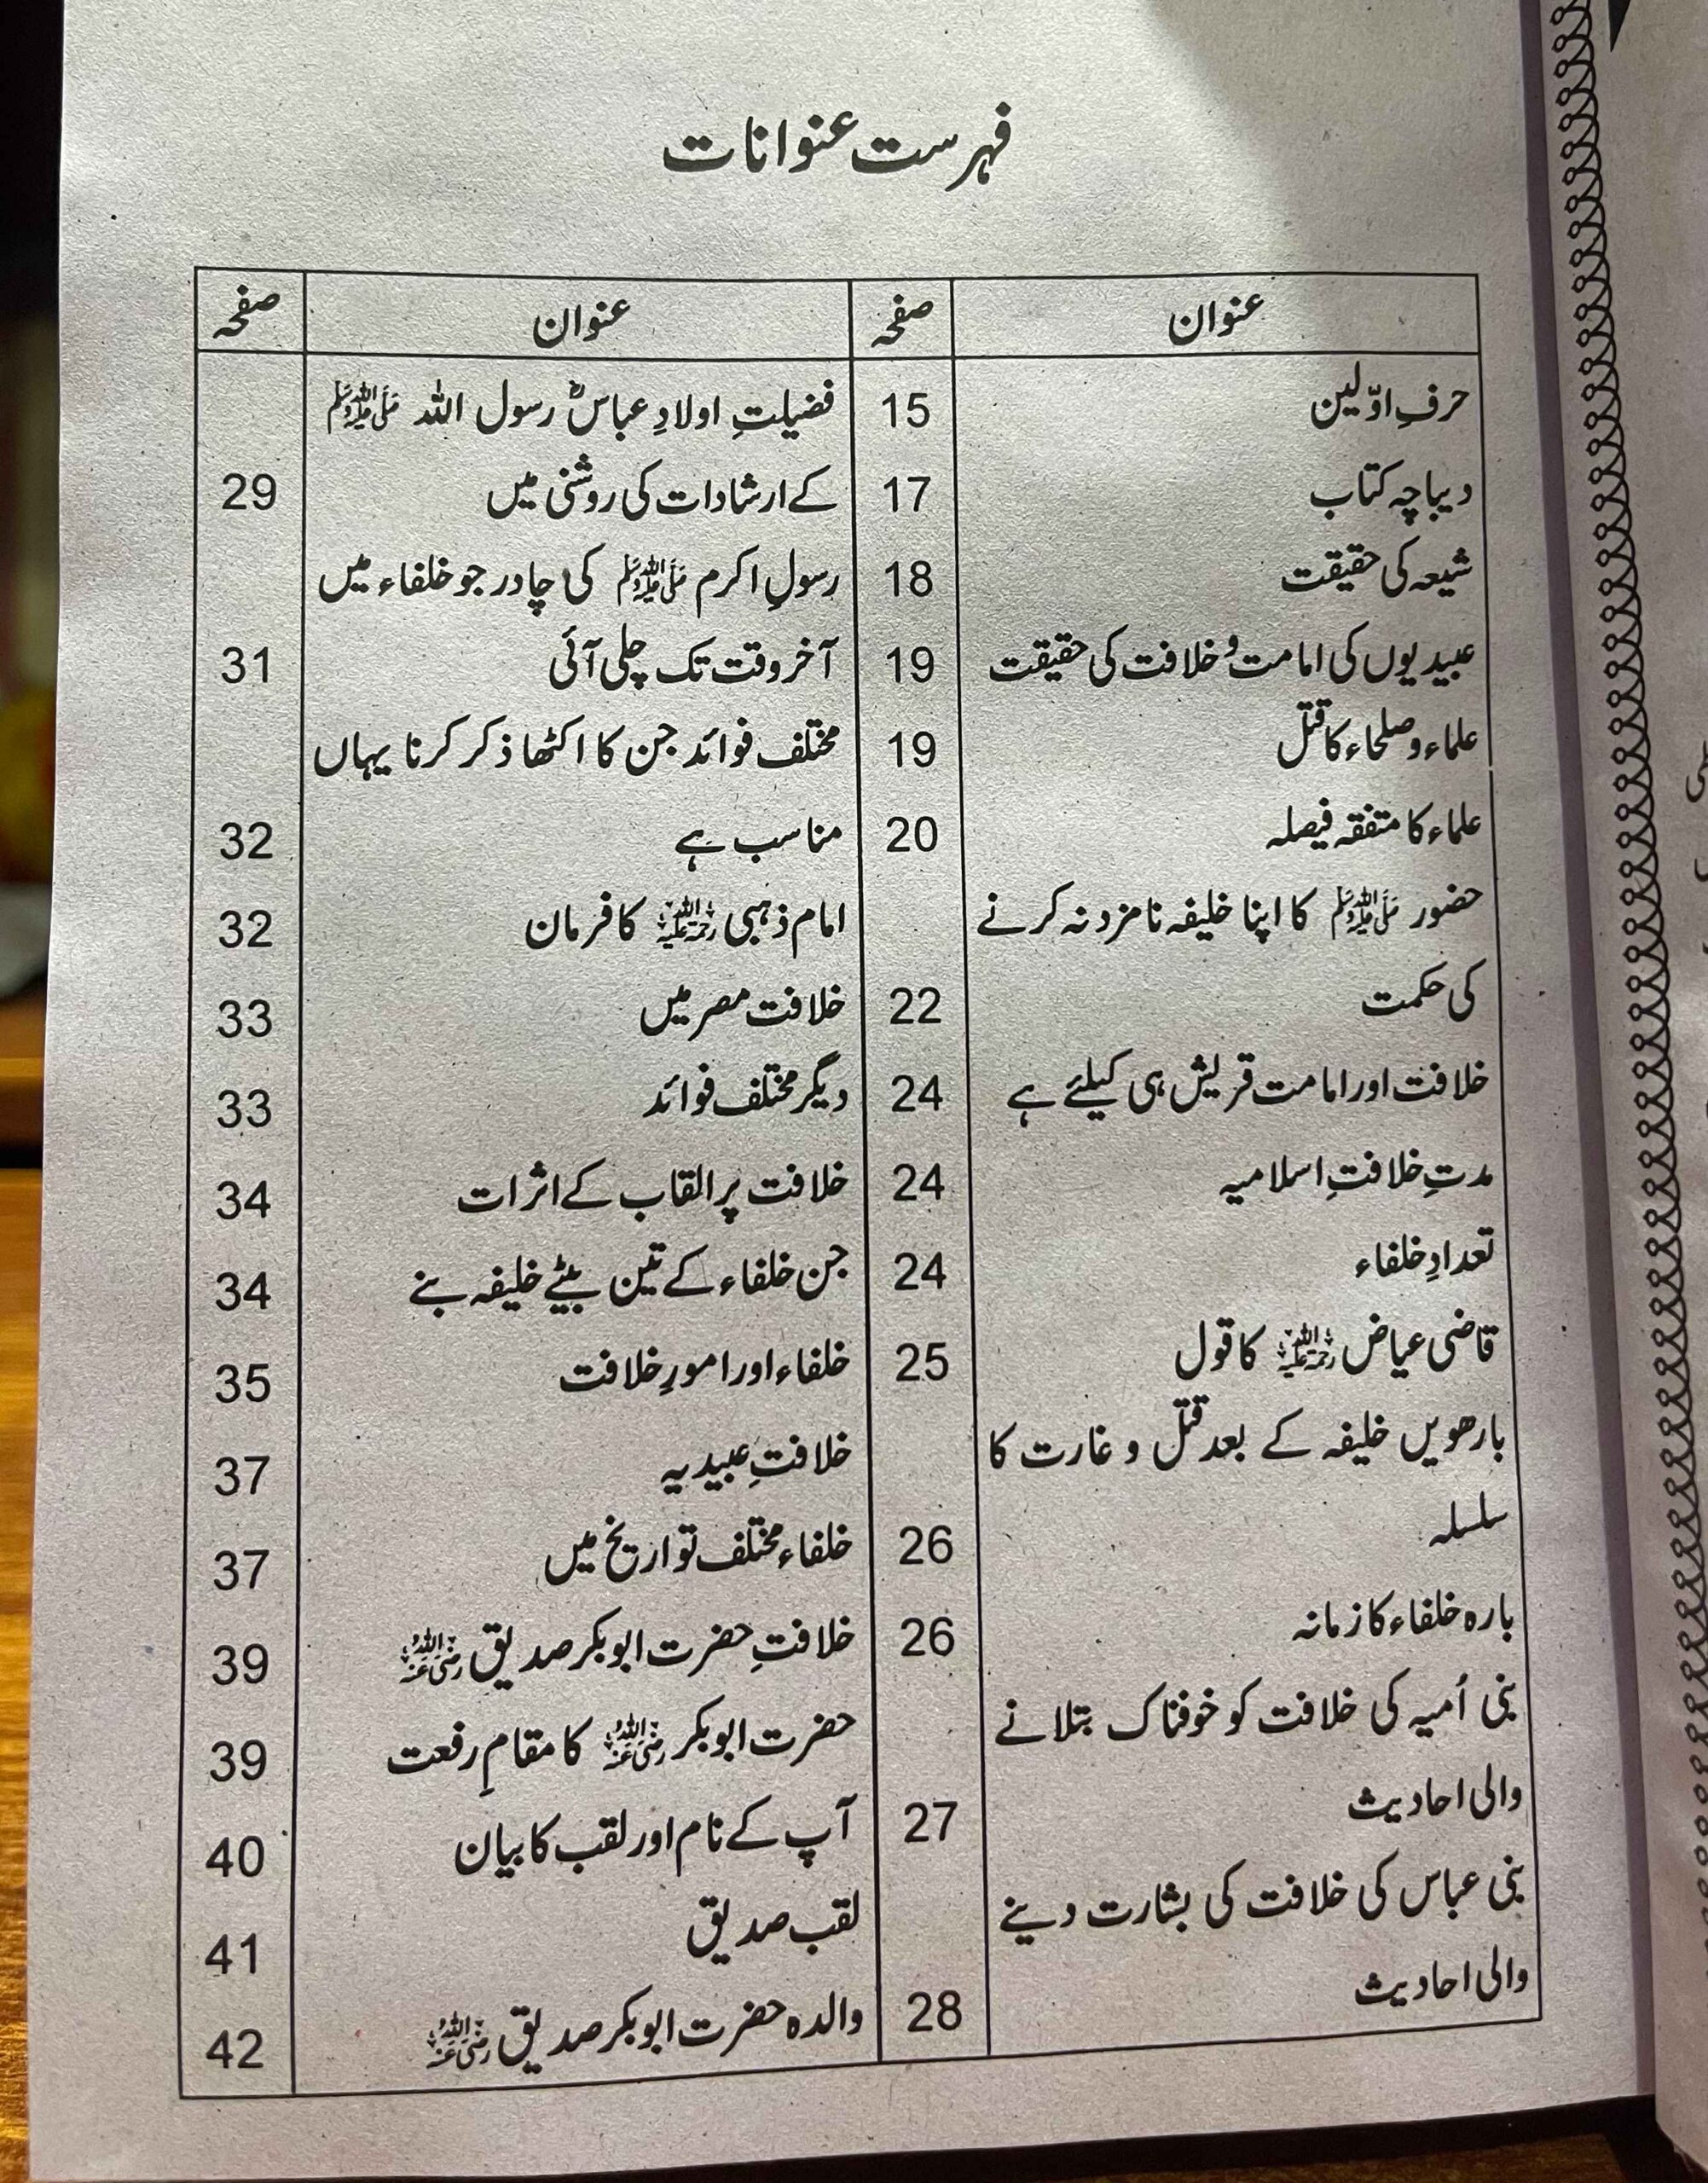 فہرست عنوانات
عنوان صفحہ
حرفِ اوّلین 15
دیباچہ کتاب 17
شیعہ کی حقیقت 18
عبیدیوں کی امامت و خلافت کی حقیقت 19
علماء و صلحاء کا قتل 19
علماء کا متفقہ فیصلہ 20
حضور ﷺ کا اپنا خلیفہ نامزد نہ کرنے
کی حکمت 22
خلافت اور امامت قریش ہی کیلئے ہے 24
مدتِ خلافتِ اسلامیہ 24
تعدادِ خلفاء 24
قاضی عیاض رحمۃ اللہ علیہ کا قول 25
بارھویں خلیفہ کے بعد قتل و غارت کا
سلسلہ 26
بارہ خلفاء کا زمانہ 26
بنی اُمیہ کی خلافت کو خوفناک بتلانے
والی احادیث 27
بنی عباس کی خلافت کی بشارت دینے
والی احادیث 28
عنوان صفحہ
فضیلتِ اولادِ عباسؓ رسول اللہ ﷺ
کے ارشادات کی روشنی میں 29
رسولِ اکرم ﷺ کی چادر جو خلفاء میں
آخر وقت تک چلی آئی 31
مختلف فوائد جن کا اکٹھا ذکر کرنا یہاں
مناسب ہے 32
امام ذہبی رحمۃ اللہ علیہ کا فرمان 32
خلافت مصر میں 33
دیگر مختلف فوائد 33
خلافت پر القاب کے اثرات 34
جن خلفاء کے تین بیٹے خلیفہ بنے 34
خلفاء اور امورِ خلافت 35
خلافتِ عبیدیہ 37
خلفاء مختلف تواریخ میں 37
خلافتِ حضرت ابوبکر صدیق رضی اللہ عنہ 39
حضرت ابوبکر رضی اللہ عنہ کا مقامِ رفعت 39
آپ کے نام اور لقب کا بیان 40
لقب صدیق 41
والدہ حضرت ابوبکر صدیق رضی اللہ عنہ 42